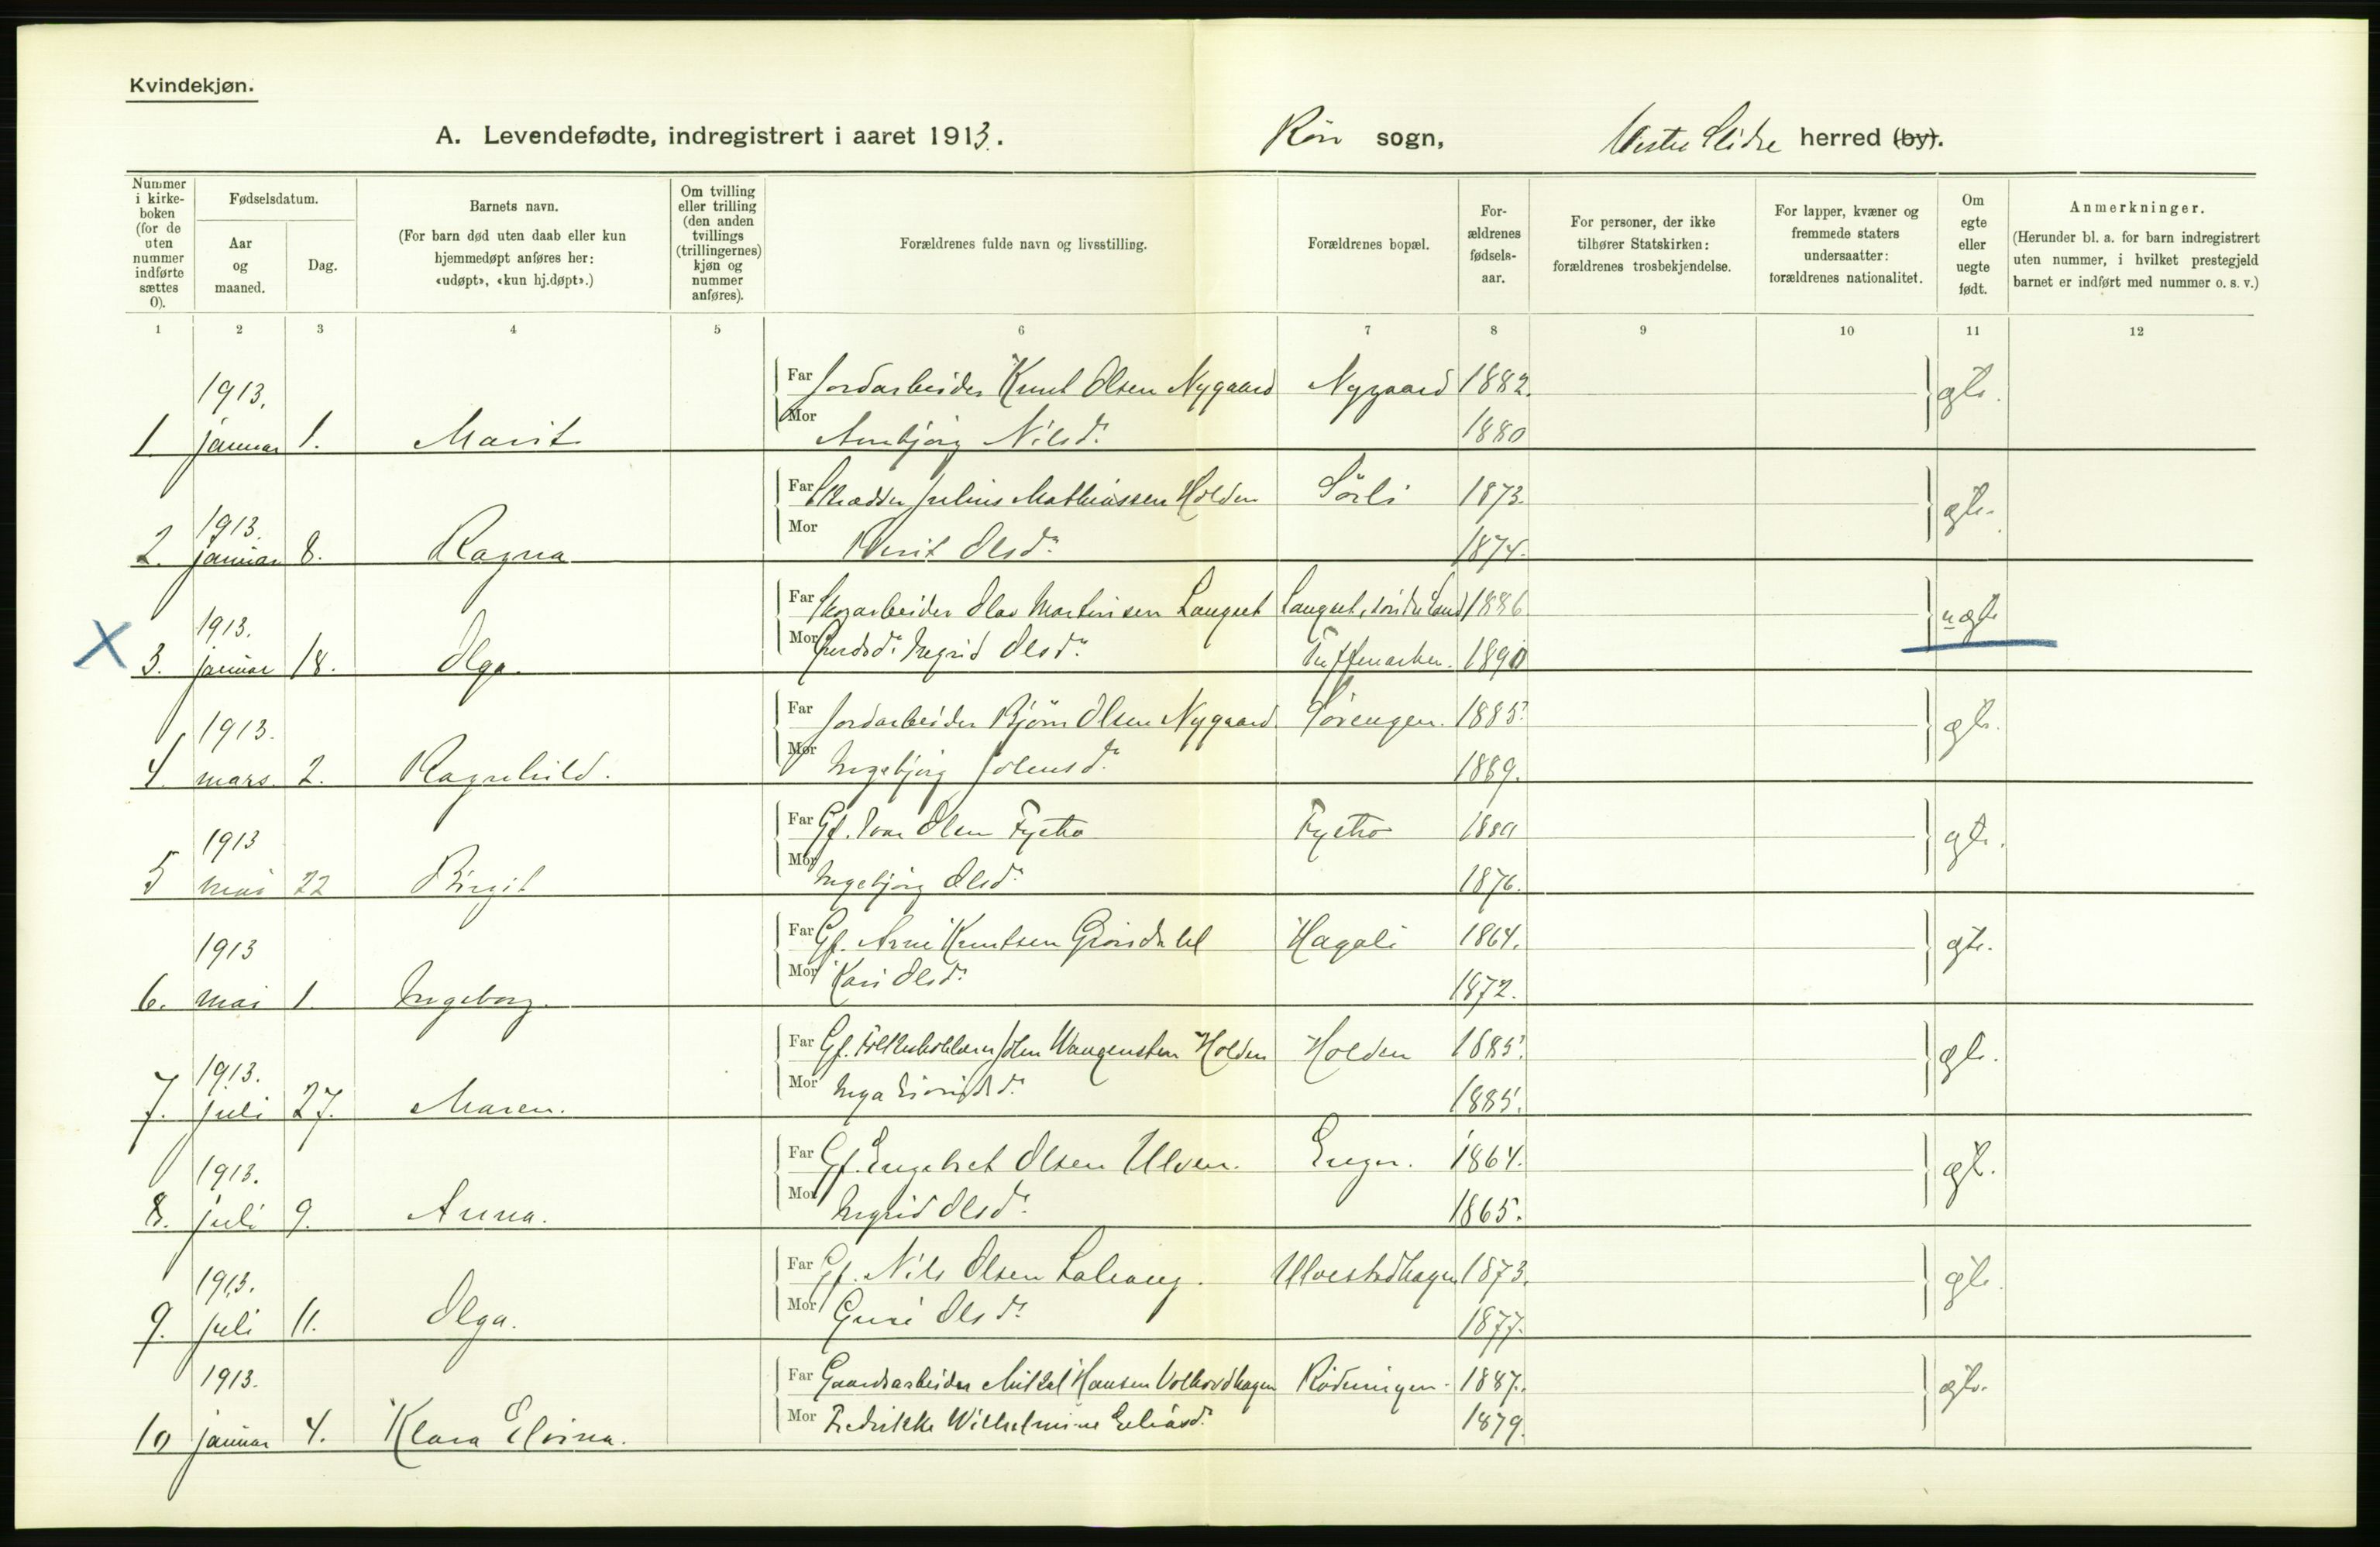 Kvindekjøn.
A. Levendefødte, indregistrert i aaret 1913.
Røn sogn,
Vestre Slidre herred (by).
Nummer i kirkeboken (for de uten nummer indførte sættes 0).
Fødselsdatum.
Aar og maaned.
Dag.
Barnets navn.
(For barn død uten daab eller kun hjemmedøpt anføres her: «udøpt», «kun hj.døpt».)
Om tvilling eller trilling (den anden tvillings (trillingernes) kjøn og nummer anføres).
Forældrenes fulde navn og livsstilling.
Forældrenes bopæl.
Forældrenes fødselsaar.
For personer, der ikke tilhører Statskirken: forældrenes trosbekjendelse.
For lapper, kvæner og fremmede staters undersaatter: forældrenes nationalitet.
Om egte eller uegte født.
Anmerkninger.
(Herunder bl. a. for barn indregistrert uten nummer, i hvilket prestegjeld barnet er indført med nummer o. s. v.)
1 2 3 4 5 6 7 8 9 10 11 12
1913. Far Jordarbeider Knut Olsen Nygaard Nygaard 1882. gte.
1. januar 1. Marit Mor Annbjørg Nilsd. 1880
1913. Far Skrædder Julius Mathiassen Holden Sörli 1873. ægte.
2. januar 8. Ragna Mor Berit Olsd. 1874.
1913. Far Skogarbeider Olav Martinsen Langset Langset, Söndre Land 1886 uægte
X 3. januar 18. Olga. Mor Ingrid Olsd. 1890
1913. Far Jordarbeider Björn Olsen Nygaard Sörengen. 1885. gte.
4. mars. 2. Ragnhild. Mor Ingebjørg Johensd. 1889.
1913 Far Gf. Ivar Olsen Fystro Fystro gte.
5 mai 22 Birgit Mor Ingebjørg Olsd. 1876.
1913 Far Gf. Arne Knutsen Grönsdalel Hagali 1864. gte.
6. mai 1. Ingeborg. Mor Kari Olsd. 1872.
1913. Far Gf. John Wangensten Holden Holden 1885. gte.
7. juli 27. Maren. Mor Inga 1885.
1913. Far Gf. Engebret Olsen Ulven. Enger. 1864. ægt.
8. juli 9. Anna. Mor Ingrid Olsd. 1865.
1913. Far Gf. Nils Olsen Ulvestadhagen 1873. gte.
9. juli 11. Olga. Mor Guri Olsd. 1877.
1913. Far Gaardsarbeider Mikkel Hansen Volhovdhagen Rödningen. 1887. ægte.
10 januar 4. Klara Elvina. Mor Fredrikke Wilhelmine Eliasd. 1879.